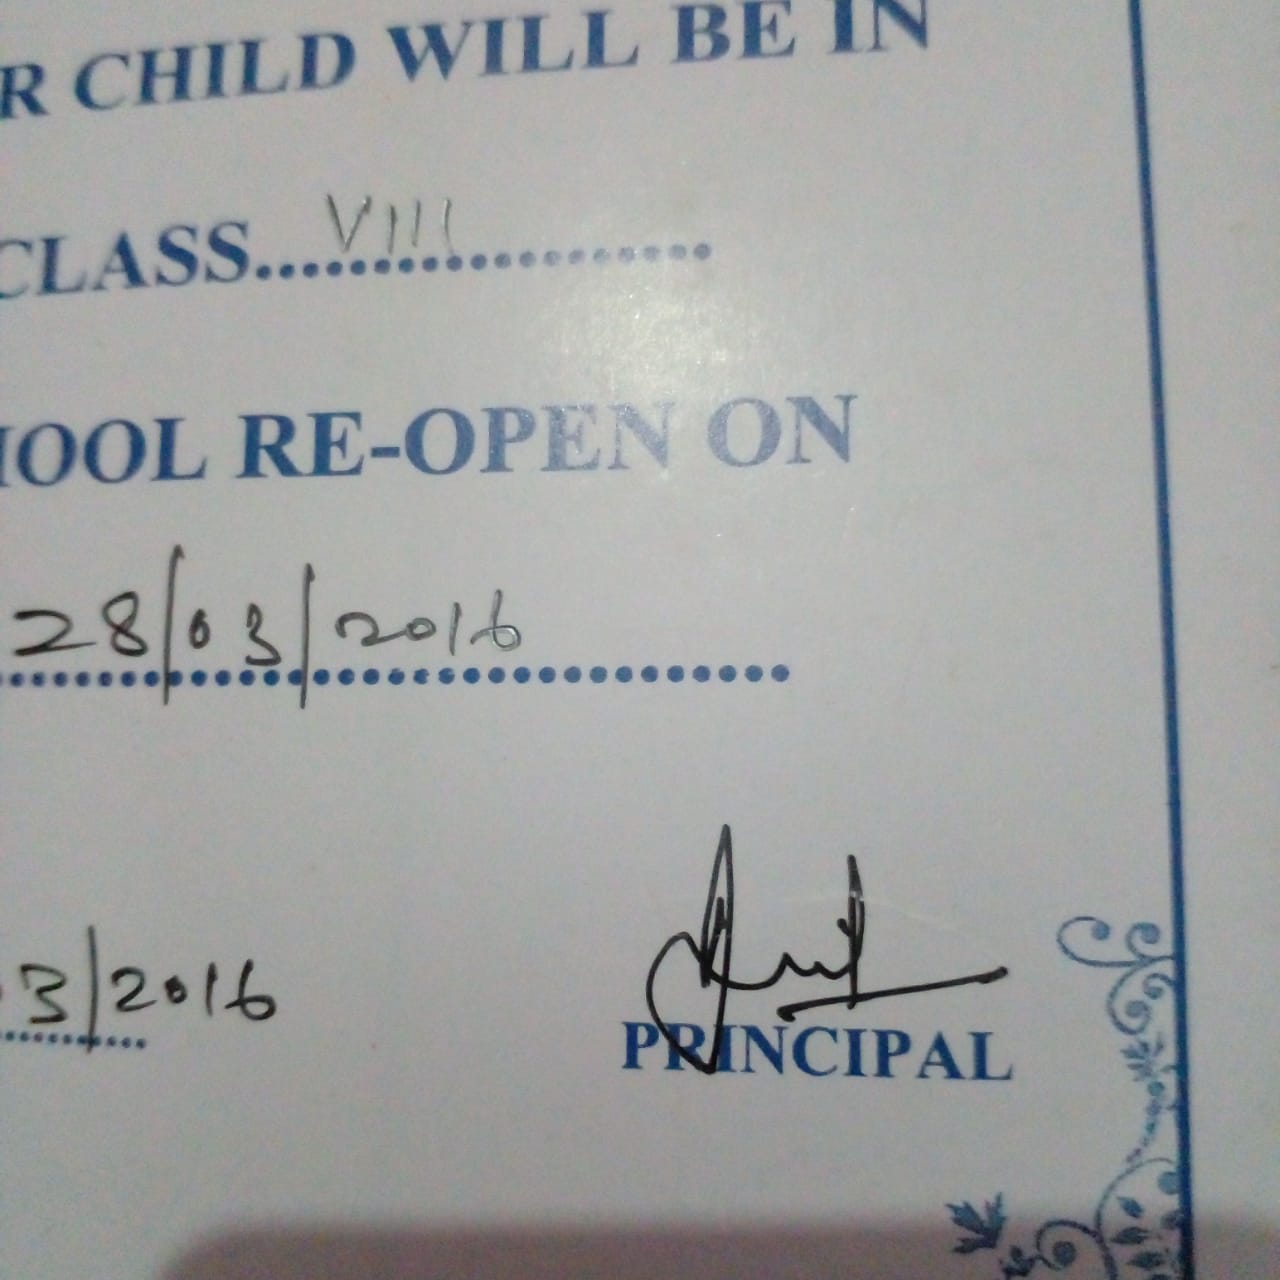 R CHILD WILL BE IN
CLASS...VIII...................
HOOL RE-OPEN ON
28/03/2016
3/2016
PRINCIPAL